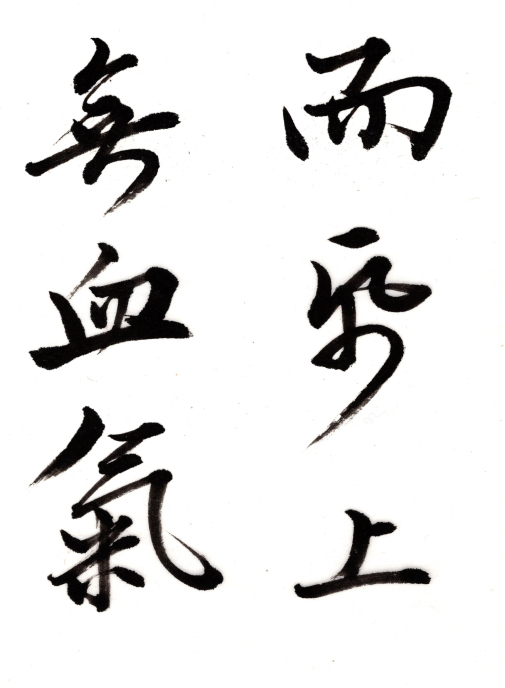 而上
無血氣